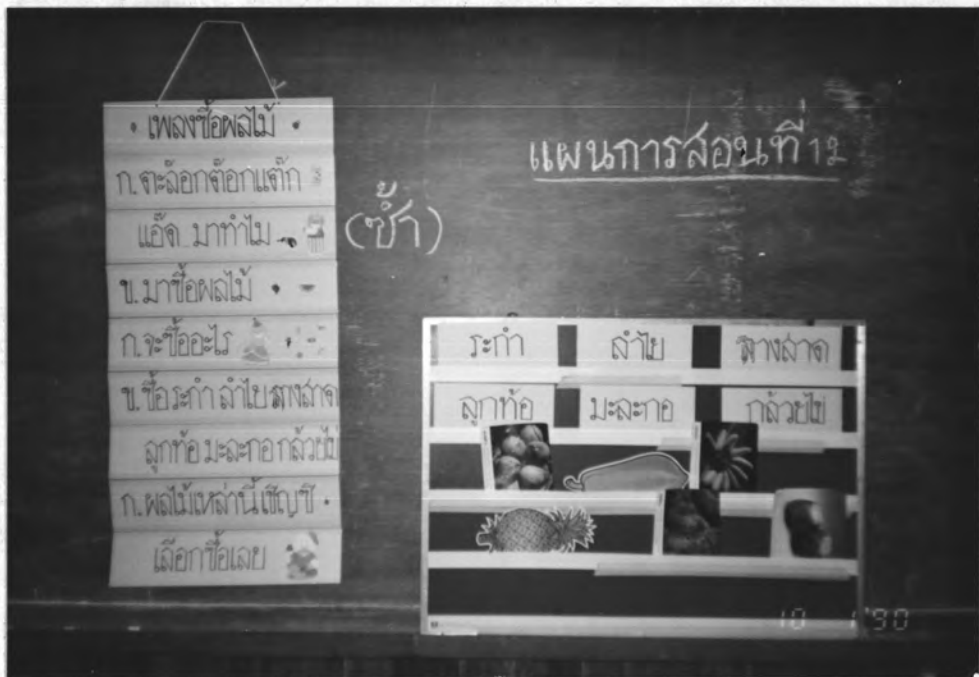 เพลงซื้อผลไม้
ก. ตะล๊อกต๊อกแต๊ก
แอ๊ด มาทำไม
ข. มาซื้อผลไม้
ก. จะซื้ออะไร
ข. ซื้อระกำ ลำไย ลางสาด
ลูกท้อ มะละกอ กล้วยไข่
ก. ผลไม้เหล่านี้ เชิญซี
เลือกซื้อเลย
(ซ้ำ)
แผนการสอนที่ 12
ระกำ ลำไย ลางสาด
ลูกท้อ มะละกอ กล้วยไข่
10 1'90